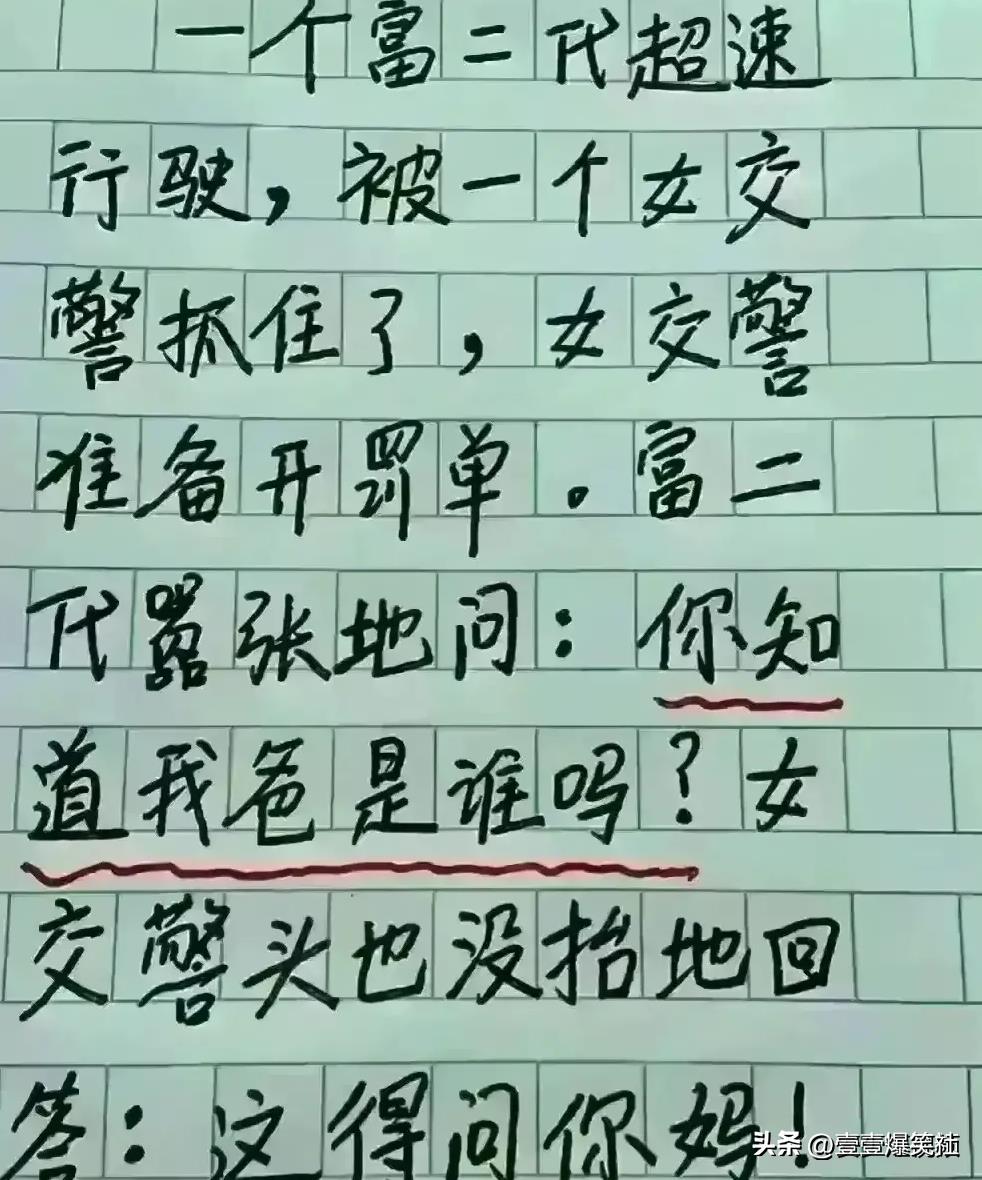 一个富二代超速
行驶，被一个女交
警抓住了，女交警
准备开罚单。富二
代嚣张地问：你知
道我爸是谁吗？女
交警头也没抬地回
答：这得问你妈！
头条 @壹壹爆笑社